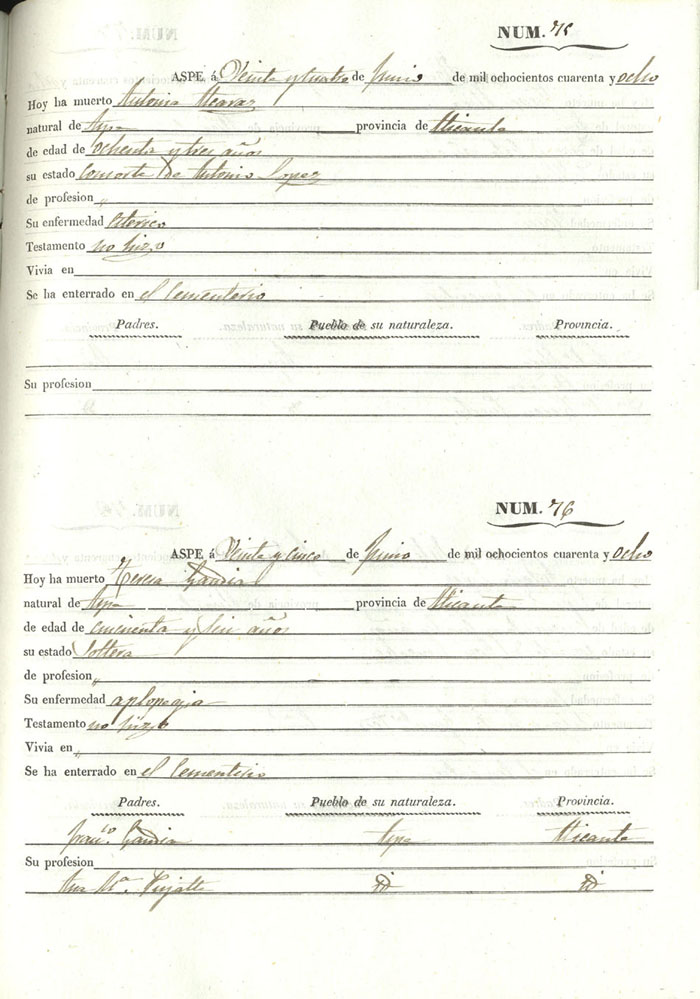 NUM. 75
ASPE á Veinte y cuatro de Junio de mil ochocientos cuarenta y ocho
Hoy ha muerto Antonia
natural de Aspe provincia de Alicante
de edad de ochenta y tres años
su estado consorte de Antonio Lopez
de profesion "
Su enfermedad
Testamento no hizo
Vivia en
Se ha enterrado en el Cementerio
Padres. Pueblo de su naturaleza. Provincia.
Su profesion
NUM. 76
ASPE á Veinte y cinco de Junio de mil ochocientos cuarenta y ocho
Hoy ha muerto Teresa
natural de Aspe provincia de Alicante
de edad de cincuenta y seis años
su estado Soltera
de profesion "
Su enfermedad aplopegia
Testamento no hizo
Vivia en "
Se ha enterrado en el Cementerio
Padres. Pueblo de su naturaleza. Provincia.
Franco. Aspe Alicante
Su profesion
Ana Ma. id id